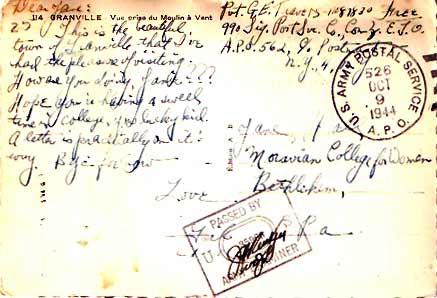 114 GRANVILLE - Vue prise du Moulin à Vent
Dear Jane:
This is the beautiful
town of Granville that I've
had the pleasure of visiting.
How are you doing Jane???
Hope you're having a swell
time in College, you lucky kid.
A letter is practically on it's
way. Bye for now
Love
Pvt. G.E. Free
990 Sig. Port Svc. Co, Com Z. E.T.O.
A.P.O. 562, % Postm
N.Y., N.Y.
U.S. ARMY POSTAL SERVICE
526
OCT
9
1944
A.P.O.
Jane
Moravian College for Women
Bethlehem,
Pa
PASSED BY
ARMY EXAMINER